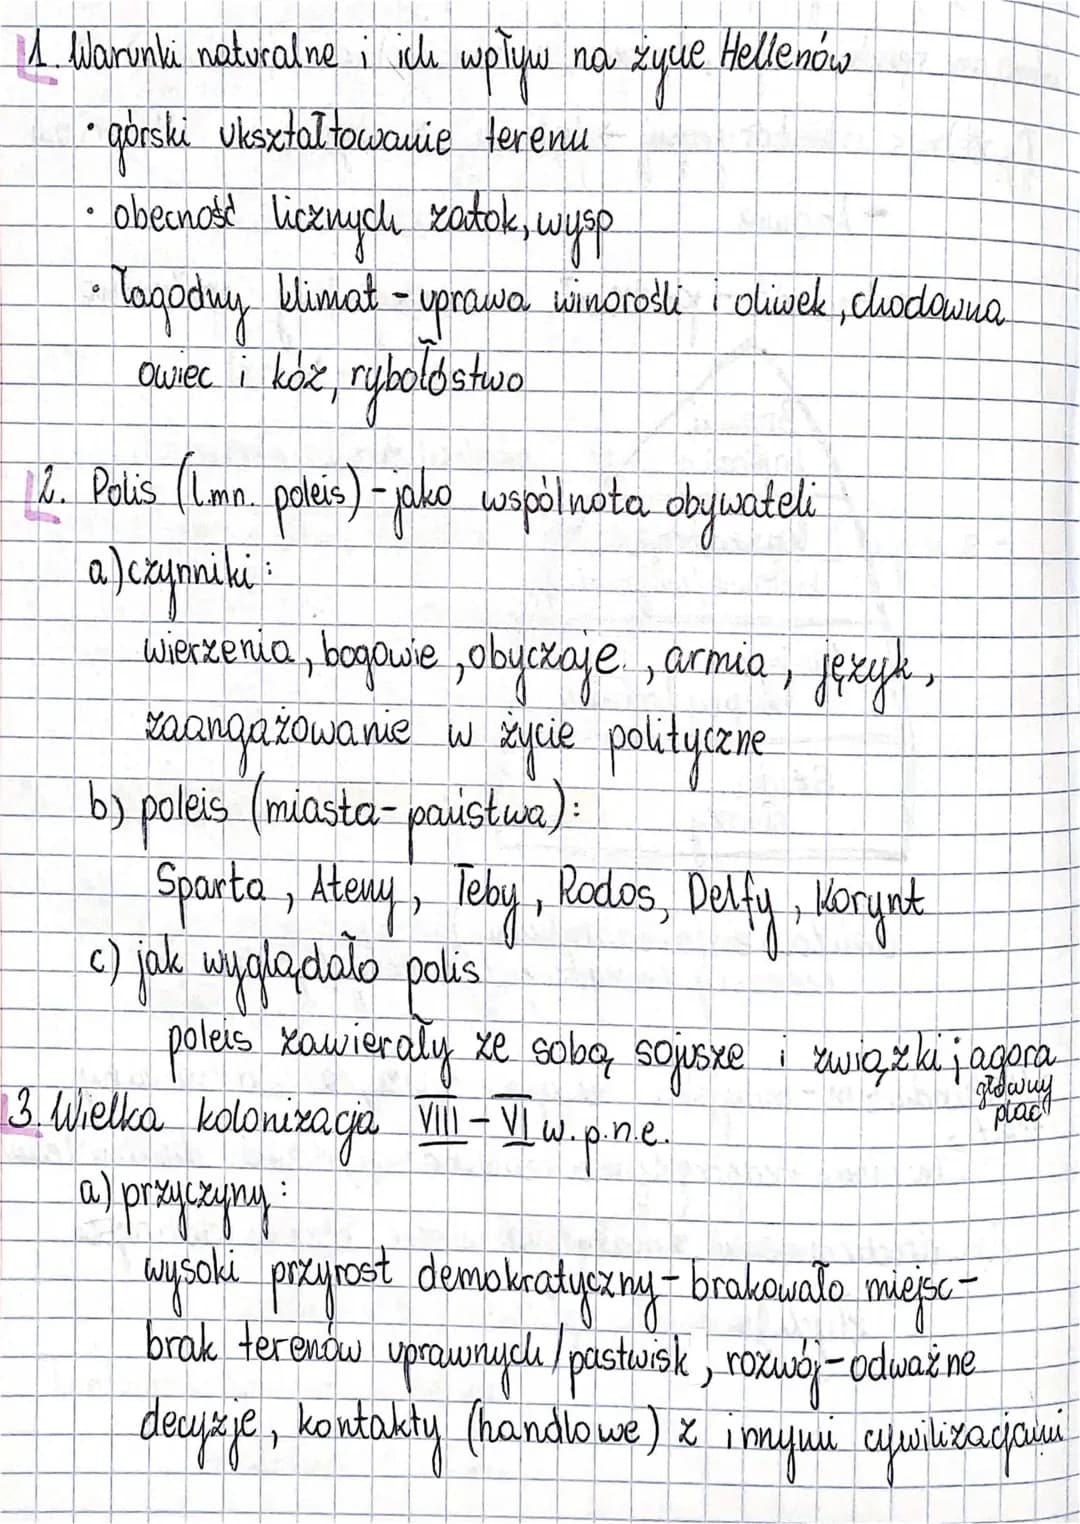 1. Warunki naturalne i ich wpływ na życie Hellenów
• górski ukształtowanie terenu
• obecność licznych zatok, wysp
• łagodny klimat - uprawa winorośli i oliwek, chodowna
owiec i kóz, rybołóstwo
2. Polis (l.mn. poleis) - jako wspólnota obywateli
a) czynniki:
wierzenia, bogowie, obyczaje, armia, język,
zaangażowanie w życie polityczne
b) poleis (miasta-państwa):
Sparta, Ateny, Teby, Rodos, Delfy, Korynt
c) jak wyglądało polis
poleis zawierały ze sobą sojusze i związki; agora
główny
plac
3. Wielka kolonizacja VIII - VI w. p.n.e.
a) przyczyny:
wysoki przyrost demokratyczny - brakowało miejsc -
brak terenów uprawnych / pastwisk, rozwój - odważne
decyzje, kontakty (handlowe) z innymi cywilizacjami